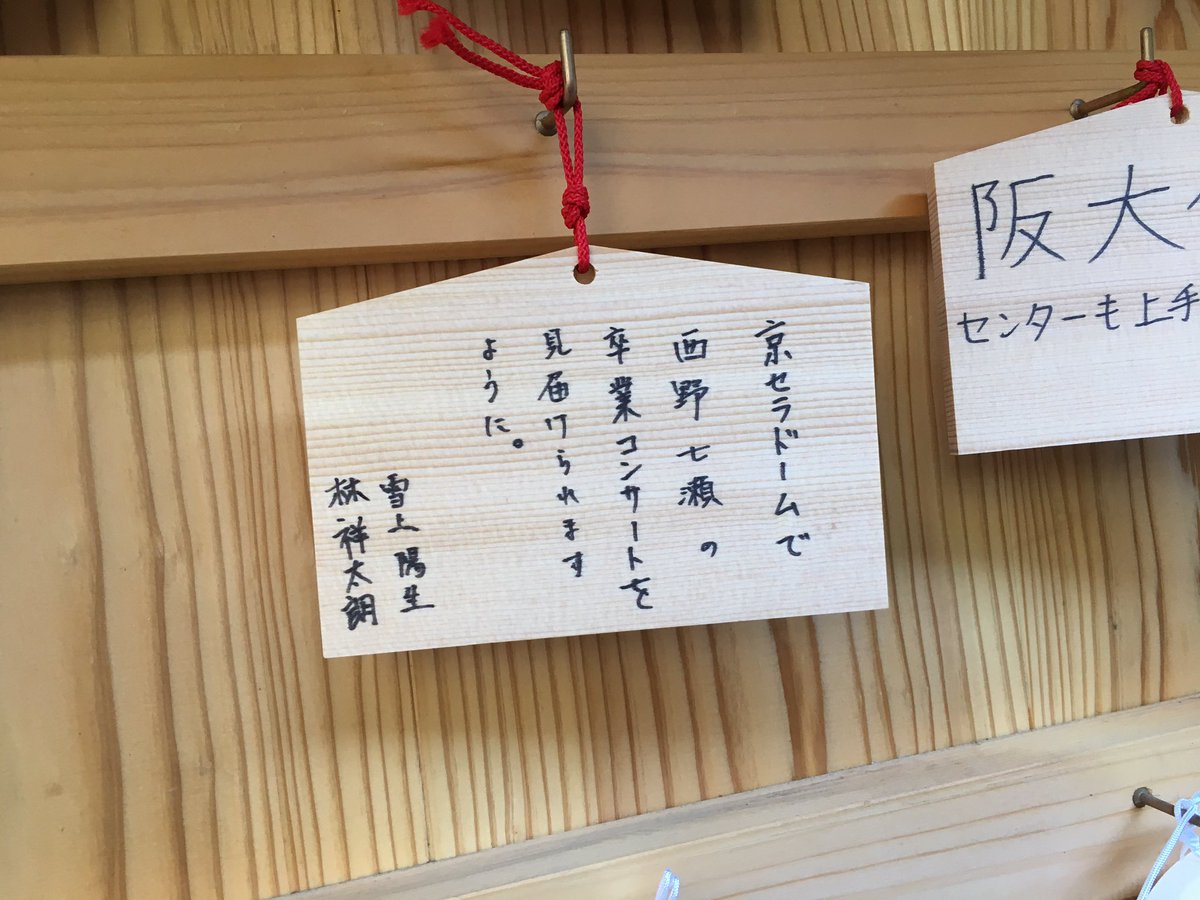 京セラドームで
西野七瀬の
卒業コンサートを
見届けられます
ように。
雪上陽生
林祥太朗
阪大
センターも上手